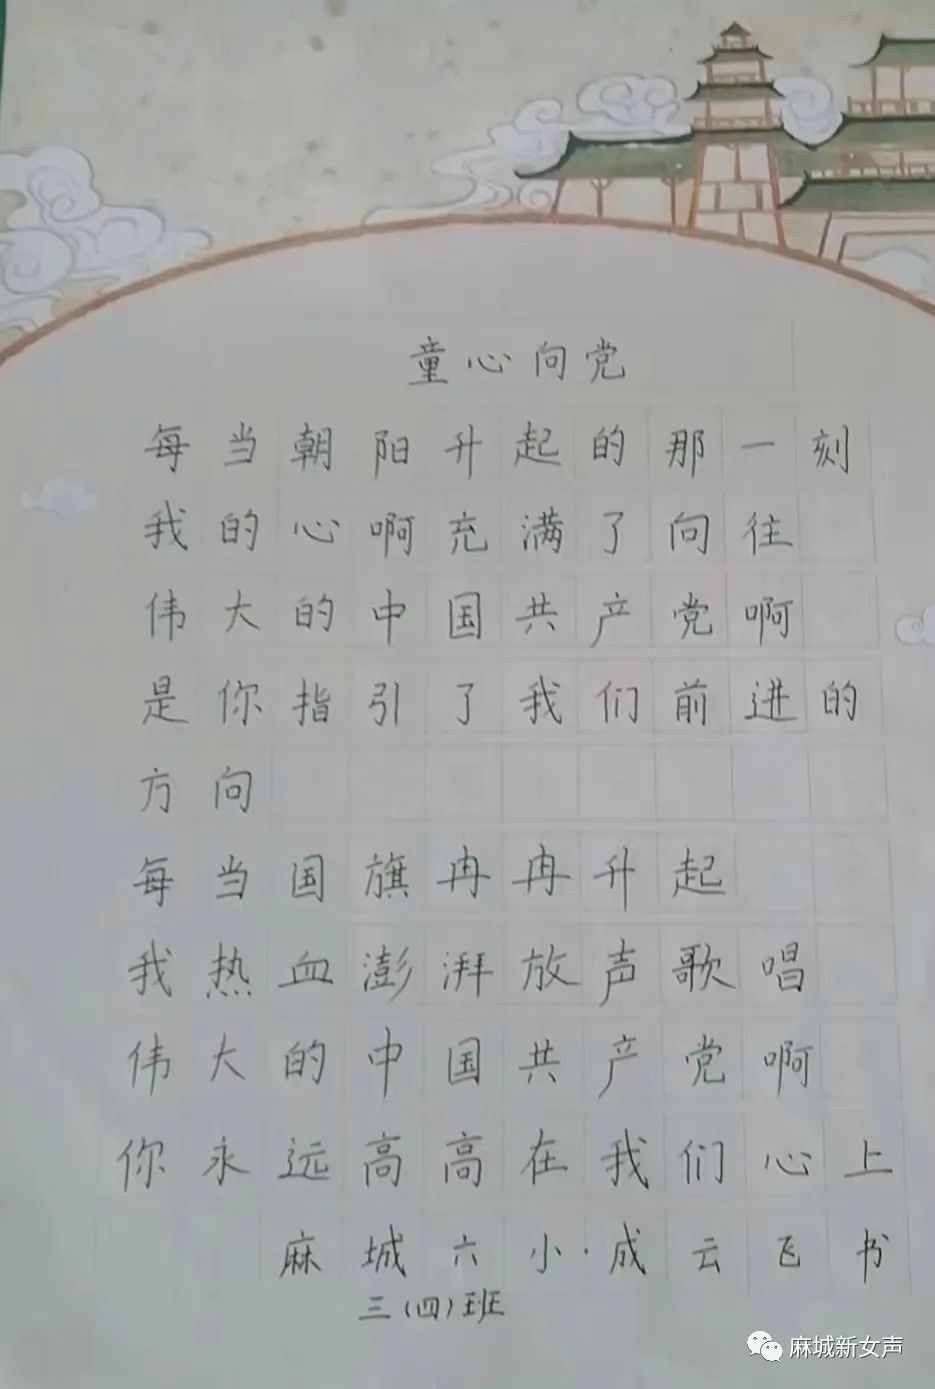 童心向党
每当朝阳升起的那一刻
我的心啊充满了向往
伟大的中国共产党啊
是你指引了我们前进的
方向
每当国旗冉冉升起
我热血澎湃放声歌唱
伟大的中国共产党啊
你永远高高在我们心上
麻城六小·成云飞书
三(四)班
麻城新女声